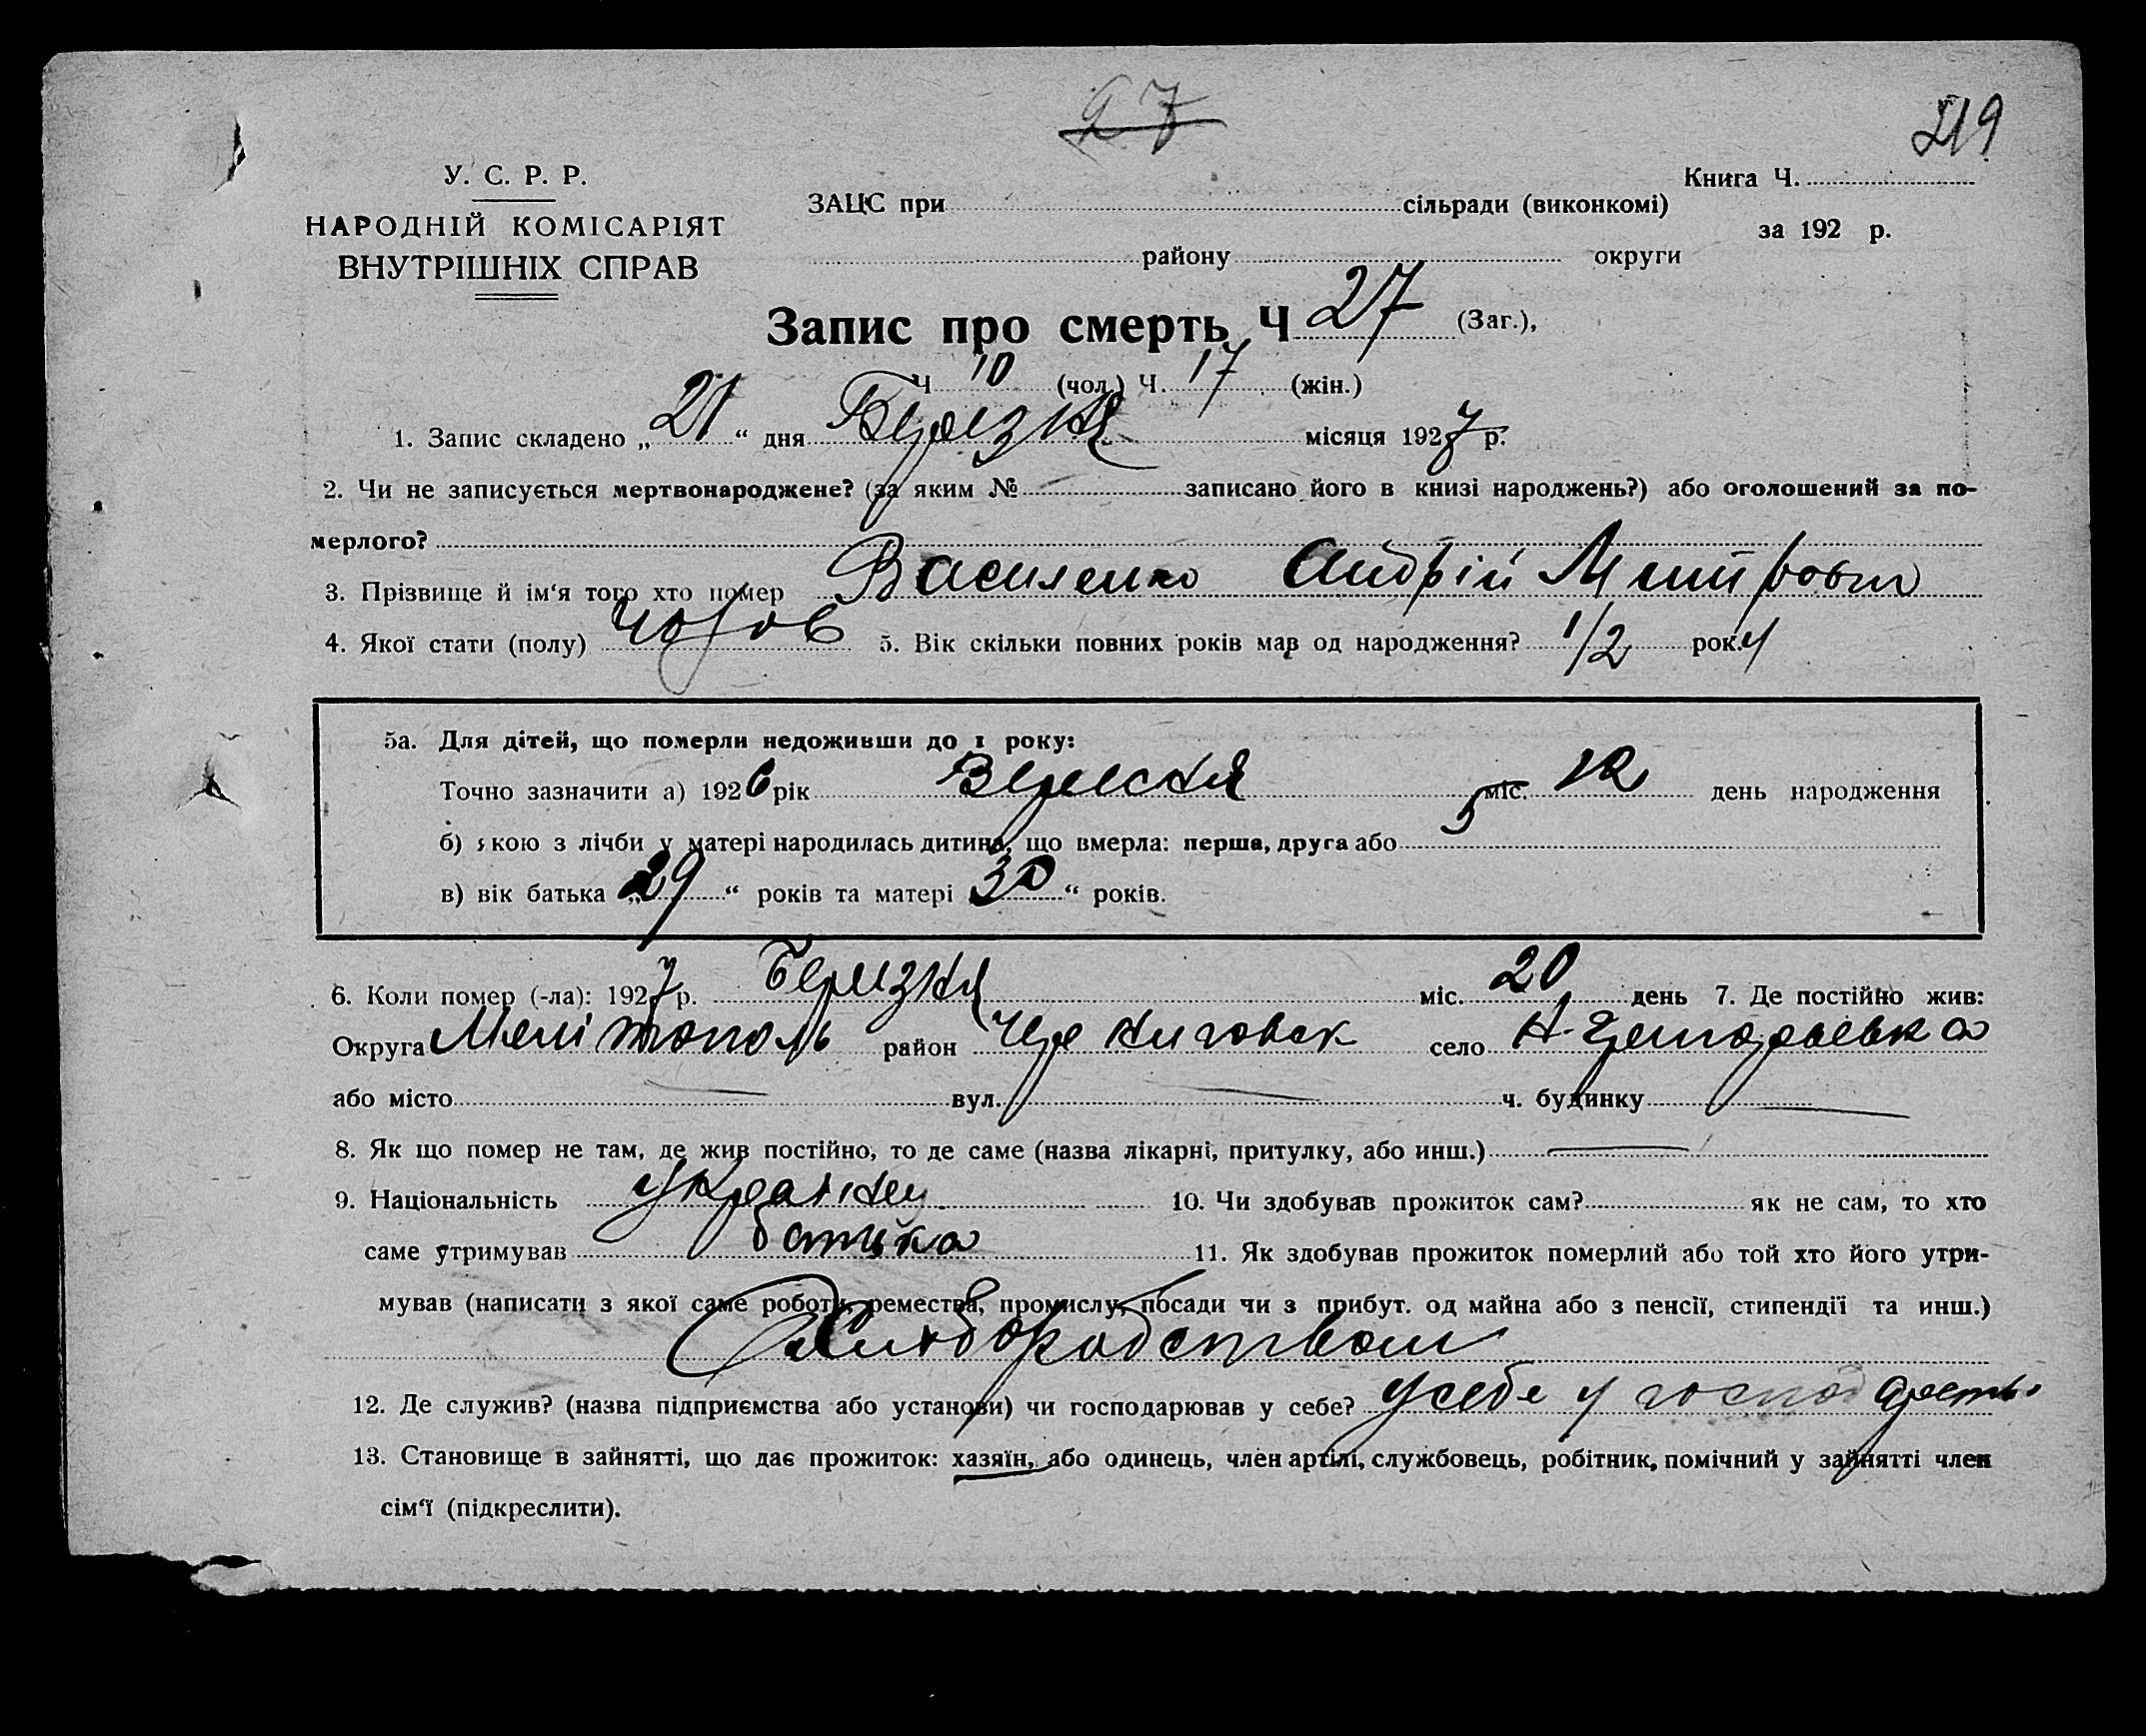 27
219
У. С. Р. Р.
НАРОДНІЙ КОМІСАРІЯТ
ВНУТРІШНІХ СПРАВ
Книга Ч.
ЗАЦС при сільради (виконкомі)
за 192 р.
району округи
Запис про смерть Ч 27 (Заг.),
Ч 10 (чол.) Ч. 17 (жін.)
1. Запис складено „ 21 “ дня Березня місяця 1927 р.
2. Чи не записується мертвонароджене? (за яким № записано його в книзі народжень?) або оголошений за по-
мерлого?
3. Прізвище й ім‘я того хто помер Василенко Андрій Митров
4. Якої стати (полу) чолов 5. Вік скільки повних років мав од народження? 1/2 роки
5а. Для дітей, що померли недоживши до 1 року:
Точно зазначити а) 1926 рік Вересня міс. 12 день народження
б) якою з лічби у матері народилась дитина, що вмерла: перша, друга або 5
в) вік батька „ 29 “ років та матері 30 “ років.
6. Коли помер (-ла): 1927 р. Березня міс. 20 день 7. Де постійно жив:
Округа Мелітополь район Черниговск село Н-Григорьевка
або місто — вул. — ч. будинку —
8. Як що помер не там, де жив постійно, то де саме (назва лікарні, притулку, або инш.) —
9. Національність Украінец 10. Чи здобував прожиток сам? як не сам, то хто
саме утримував батька 11. Як здобував прожиток померлий або той хто його утри-
мував (написати з якої саме роботи, ремества, промислу, посади чи з прибут. од майна або з пенсії, стипендії та инш.)
Хлиборобством
12. Де служив? (назва підприємства або установи) чи господарював у себе? у себе у господарств
13. Становище в зайнятті, що дає прожиток: хазяїн, або одинець, член артілі, службовець, робітник, помічний у зайнятті член
сім‘ї (підкреслити).